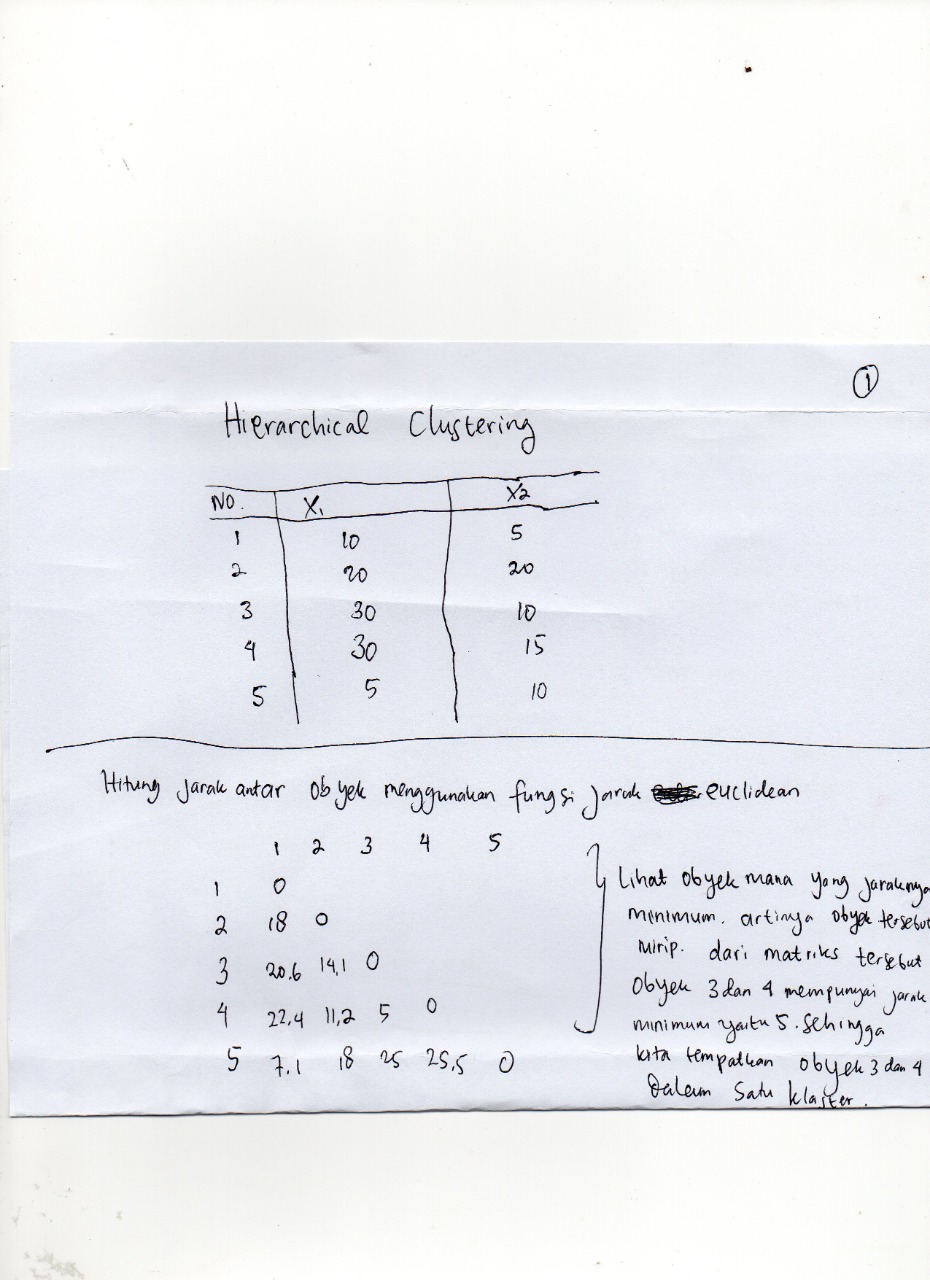 1
Hierarchical Clustering
No. X1 X2
1 10 5
2 20 20
3 30 10
4 30 15
5 5 10
Hitung jarak antar obyek menggunakan fungsi jarak euclidean
1 2 3 4 5
1 0
2 18 0
3 20.6 14,1 0
4 22,4 11,2 5 0
5 7.1 18 25 25,5 0
Lihat obyek mana yang jaraknya
minimum. artinya obyek tersebut
mirip. dari matriks tersebut
obyek 3 dan 4 mempunyai jarak
minimum yaitu 5. sehingga
kita tempatkan obyek 3 dan 4
dalam satu klaster.